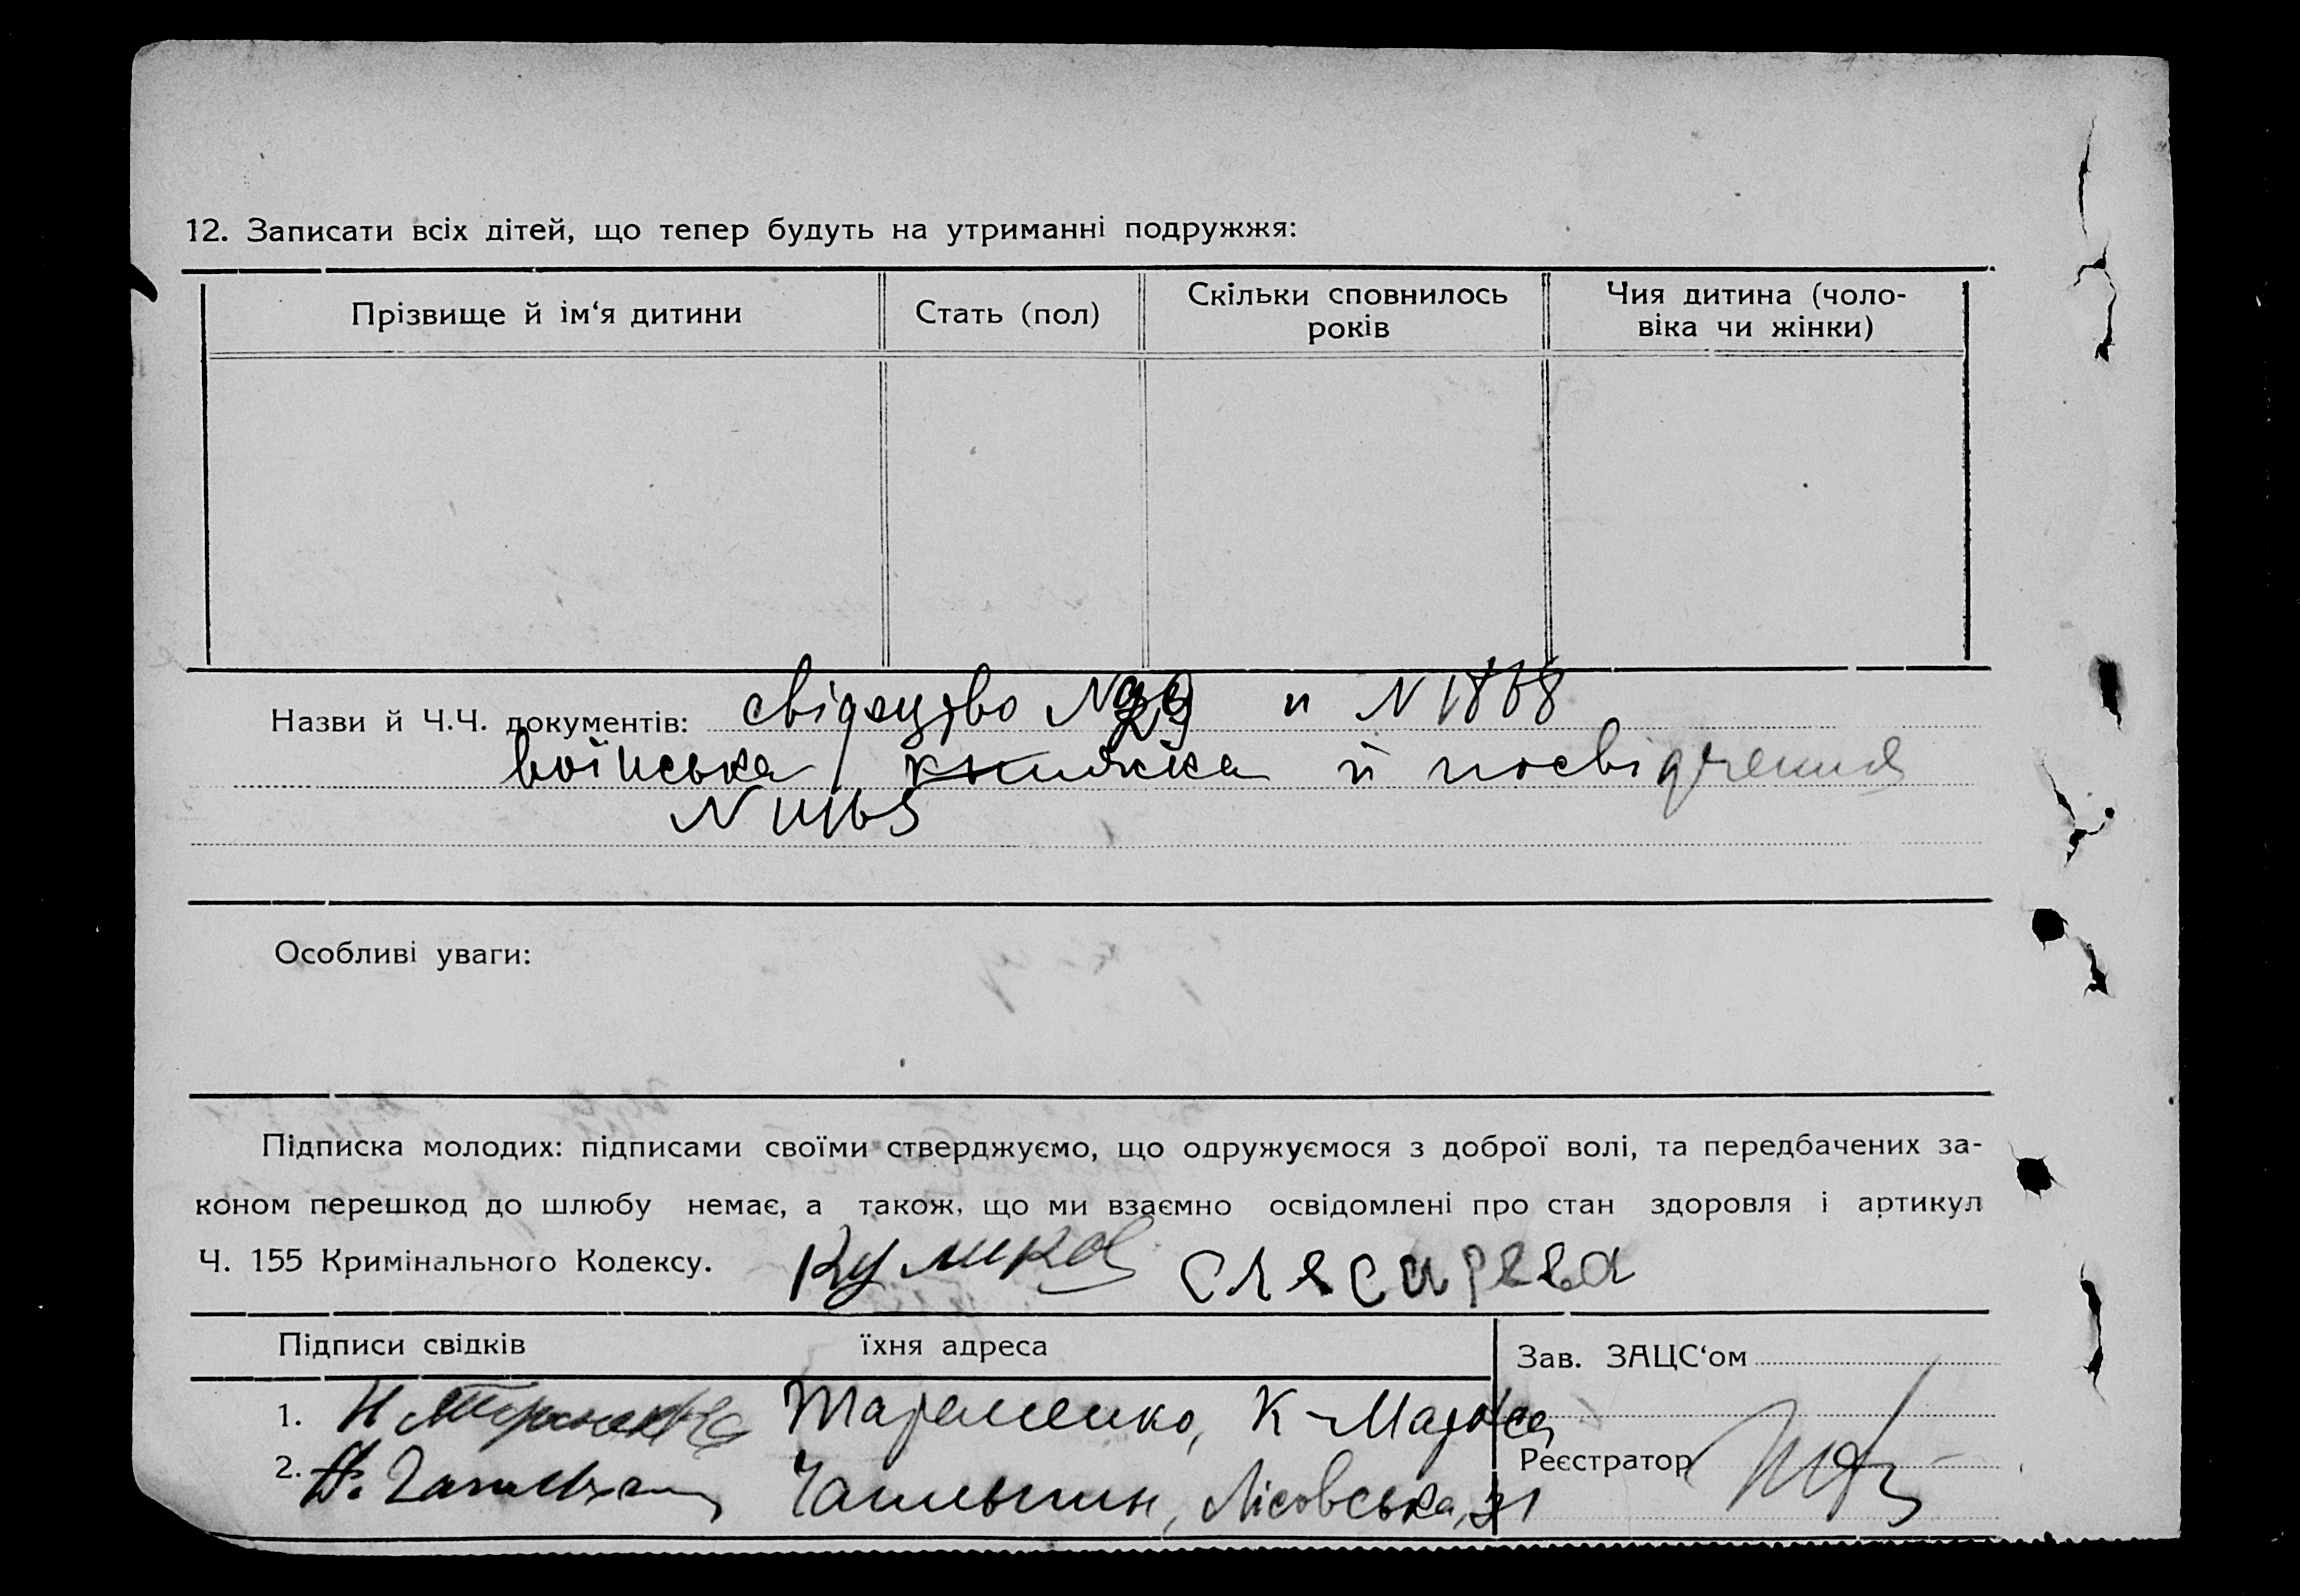 12. Записати всіх дітей, що тепер будуть на утриманні подружжя:
Прізвище й ім‘я дитини
Стать (пол)
Скільки сповнилось
років
Чия дитина (чоло-
віка чи жінки)
Назви й Ч.Ч. документів: свідоцтво N и N 1868
воїнська книжка й посвідчення
N
Особливі уваги:
Підписка молодих: підписами своїми стверджуємо, що одружуємося з доброї волі, та передбачених за-
коном перешкод до шлюбу немає, а також, що ми взаємно освідомлені про стан здоровля і артикул
Ч. 155 Кримінального Кодексу. Куликов Слесарева
Підписи свідків їхня адреса
Зав. ЗАЦС‘ом
1. Тараненко, К-Маркса,
Реєстратор
2. Лісовська, 21